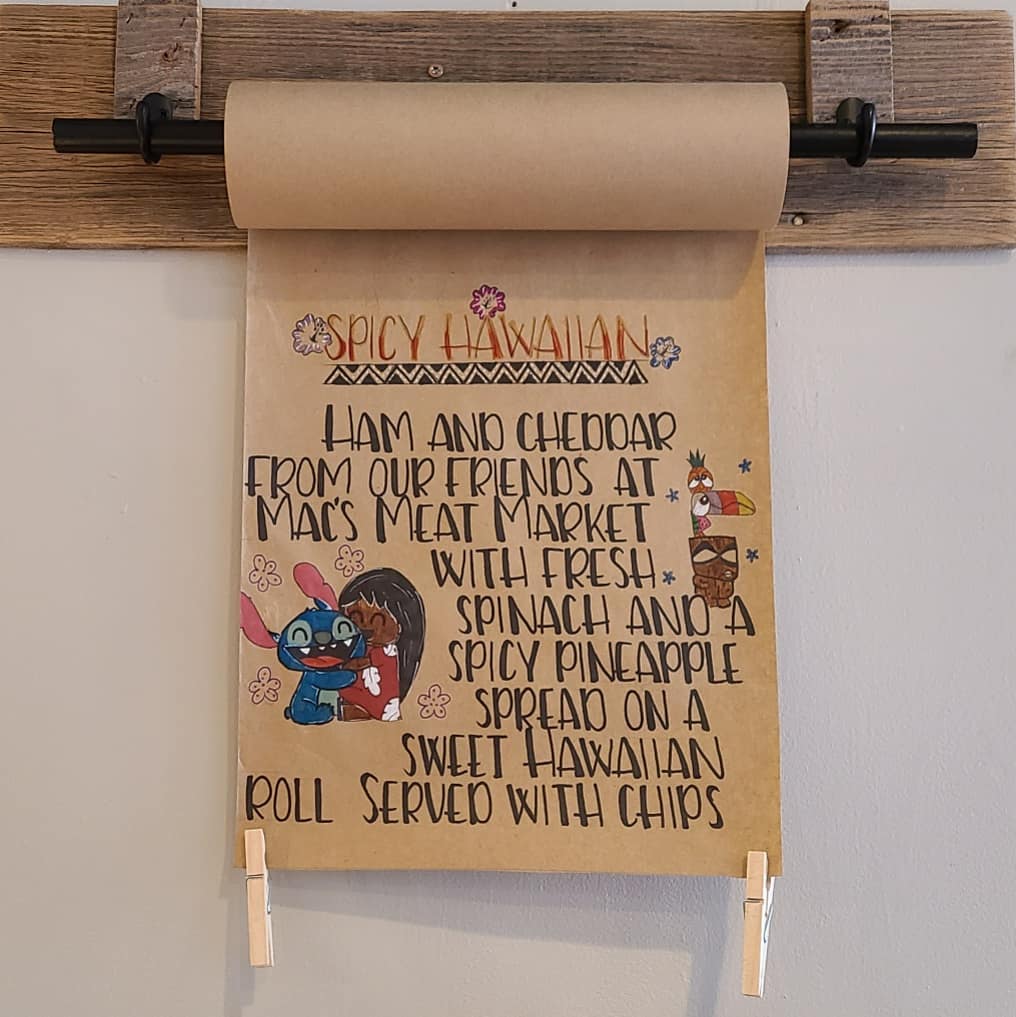 SPICY HAWAIIAN
HAM AND CHEDDAR
FROM OUR FRIENDS AT
MAC'S MEAT MARKET
WITH FRESH
SPINACH AND A
SPICY PINEAPPLE
SPREAD ON A
SWEET HAWAIIAN
ROLL SERVED WITH CHIPS